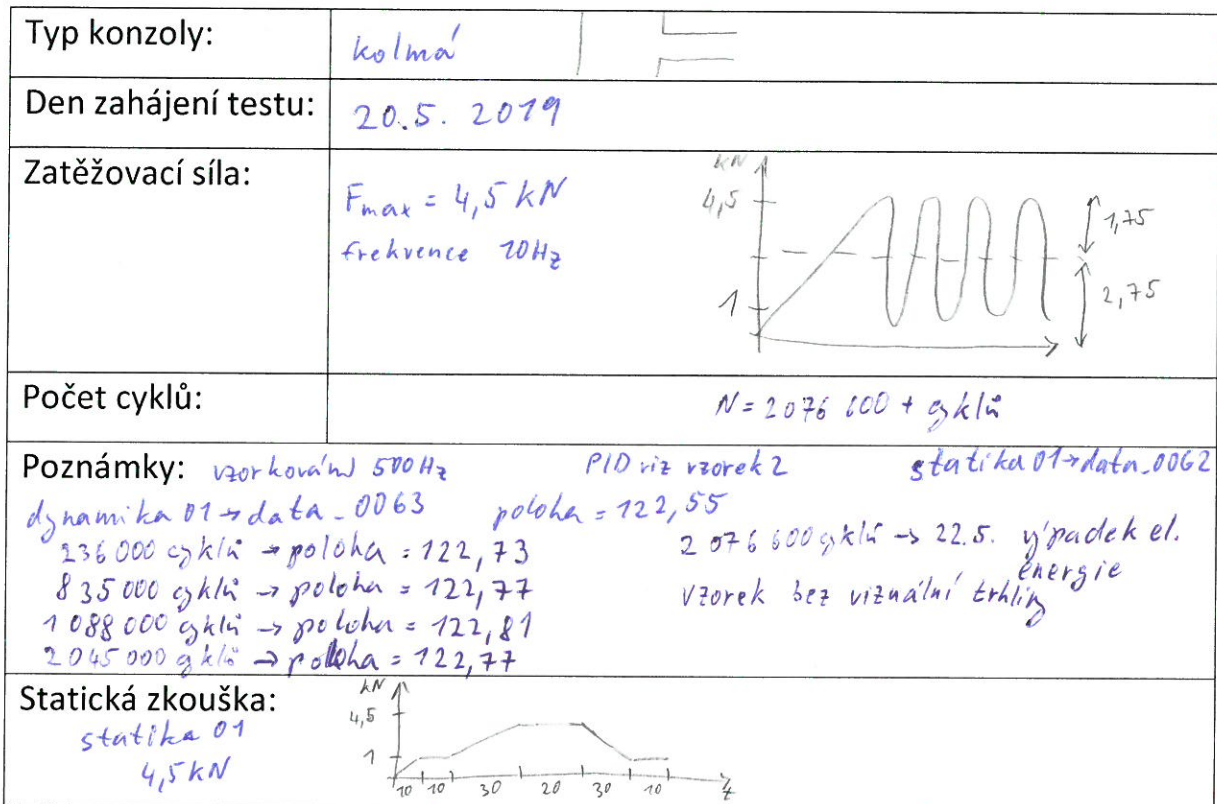 Typ konzoly: kolmá
Den zahájení testu: 20.5. 2019
Zatěžovací síla:
Fmax = 4,5 kN
frekvence 10Hz
kN
4,5
1
1,75
2,75
Počet cyklů: N = 2076 600 + cyklů
Poznámky: vzorkování 500Hz PID viz vzorek 2 statika 01→data_0062
dynamika 01→data_0063 poloha = 122,55
236 000 cyklů → poloha = 122,73
835 000 cyklů → poloha = 122,77
1 088 000 cyklů → poloha = 122,81
2 045 000 cyklů → poloha = 122,77
2 076 600 cyklů → 22.5. výpadek el.
energie
vzorek bez vizuální trhliny
Statická zkouška:
statika 01
4,5 kN
kN
4,5
1
10 10 30 20 30 10 t